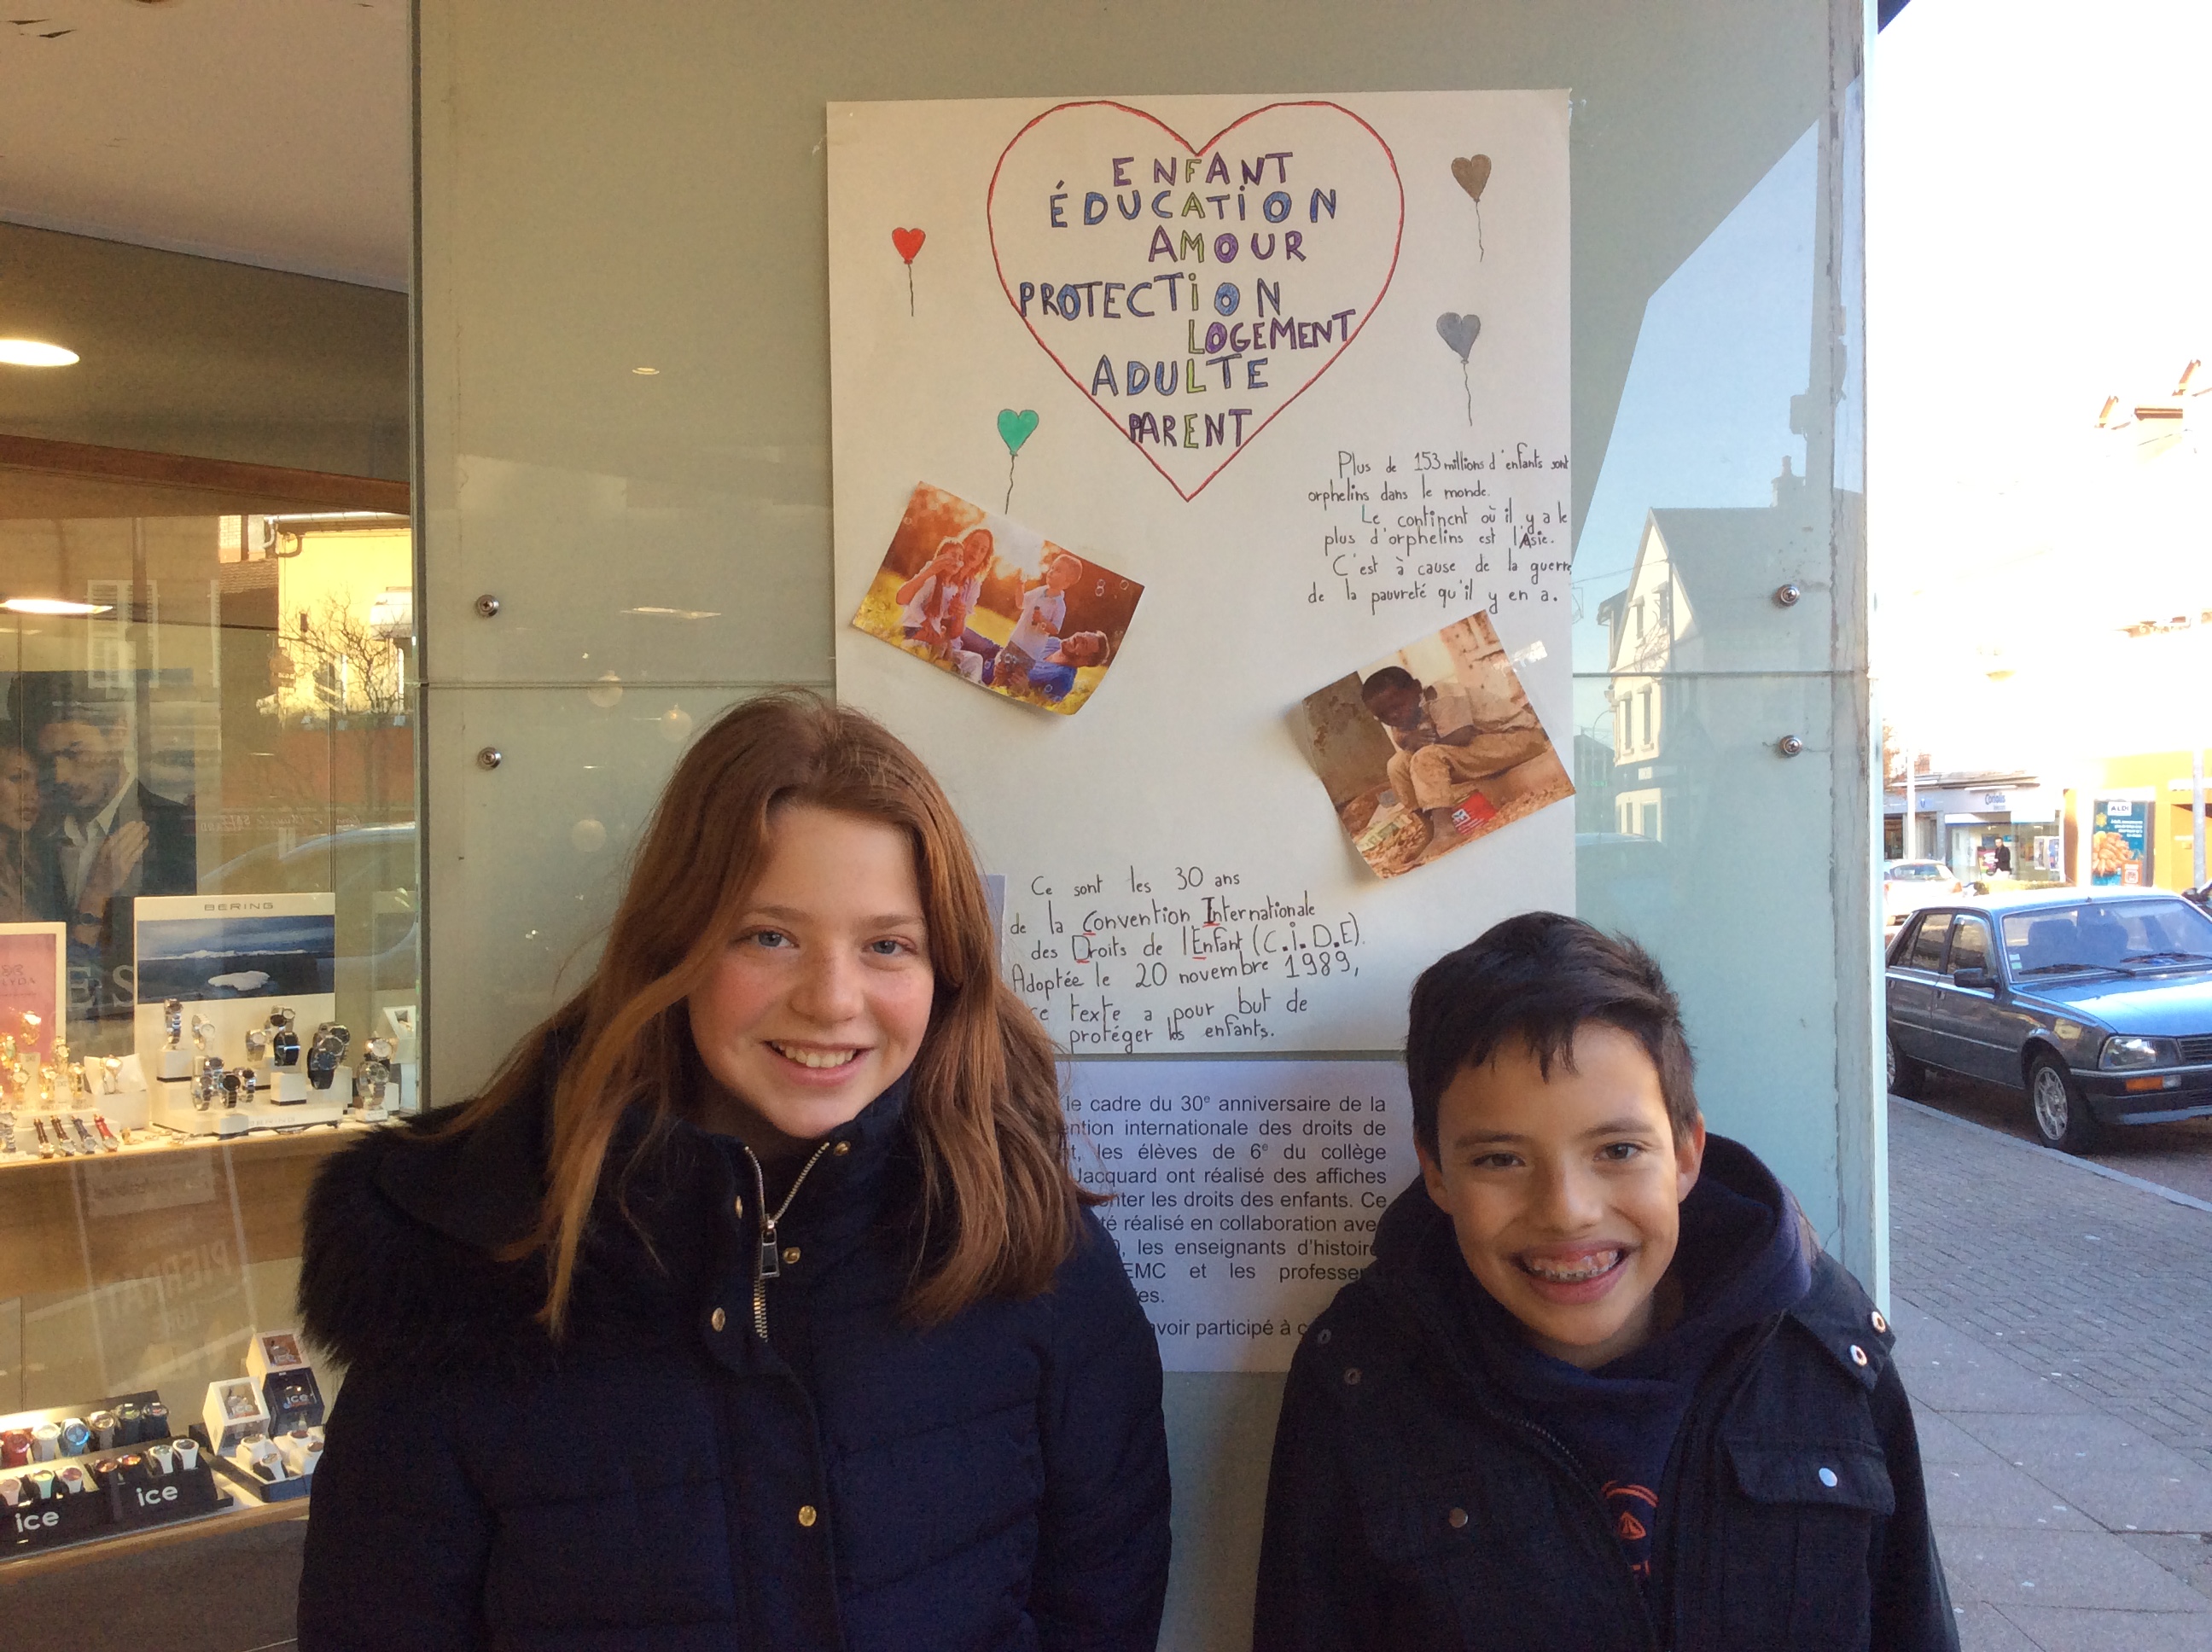 ENFANT
ÉDUCATION
AMOUR
PROTECTION
LOGEMENT
ADULTE
PARENT
Plus de 153 millions d'enfants sont
orphelins dans le monde.
Le continent où il y a le
plus d'orphelins est l'Asie.
C'est à cause de la guerre
de la pauvreté qu'il y en a.
Ce sont les 30 ans
de la Convention Internationale
des Droits de l'Enfant (C.I.D.E).
Adoptée le 20 novembre 1989,
ce texte a pour but de
protéger les enfants.
le cadre du 30e anniversaire de la
ention internationale des droits de
t, les élèves de 6e du collège
Jacquard ont réalisé des affiches
nter les droits des enfants. Ce
té réalisé en collaboration avec
, les enseignants d'histoire
EMC et les professe
res.
avoir participé à c
BERING
ice
ice
ice
ALDI